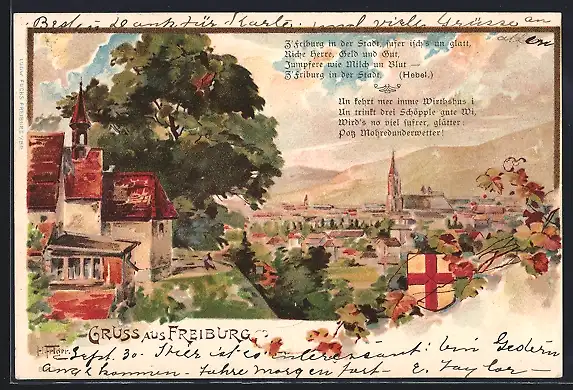 Besten Dank für Karte. und viele Grüsse an
allen
Z'Friburg in der Stadt, sufer isch's un glatt,
Riche Herre, Geld und Gut,
Jumpfere wie Milch un Blut —
Z'Friburg in der Stadt. (Hebel.)
Un kehrt mer imme Wirthshus i
Un trinkt drei Schöpple gute Wi,
Wird's no viel sufrer, glätter:
Potz Mohredunderwetter!
GRUSS AUS FREIBURG
Sept. 30. Hier ist es interessant: bin Gestern
angekommen – fahre morgen fort – E. Taylor –